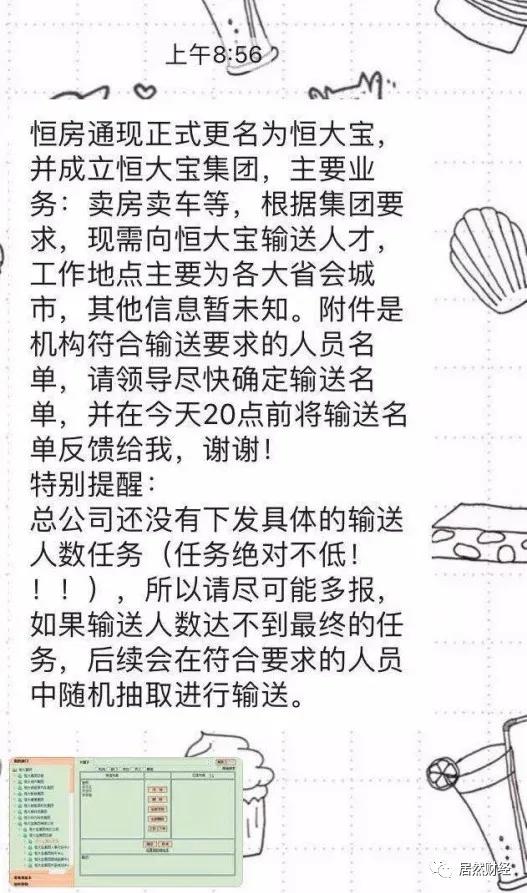 上午8:56
恒房通现正式更名为恒大宝，
并成立恒大宝集团，主要业
务：卖房卖车等，根据集团要
求，现需向恒大宝输送人才，
工作地点主要为各大省会城
市，其他信息暂未知。附件是
机构符合输送要求的人员名
单，请领导尽快确定输送名
单，并在今天20点前将输送名
单反馈给我，谢谢！
特别提醒：
总公司还没有下发具体的输送
人数任务（任务绝对不低！
！！！），所以请尽可能多报，
如果输送人数达不到最终的任
务，后续会在符合要求的人员
中随机抽取进行输送。
居然财经